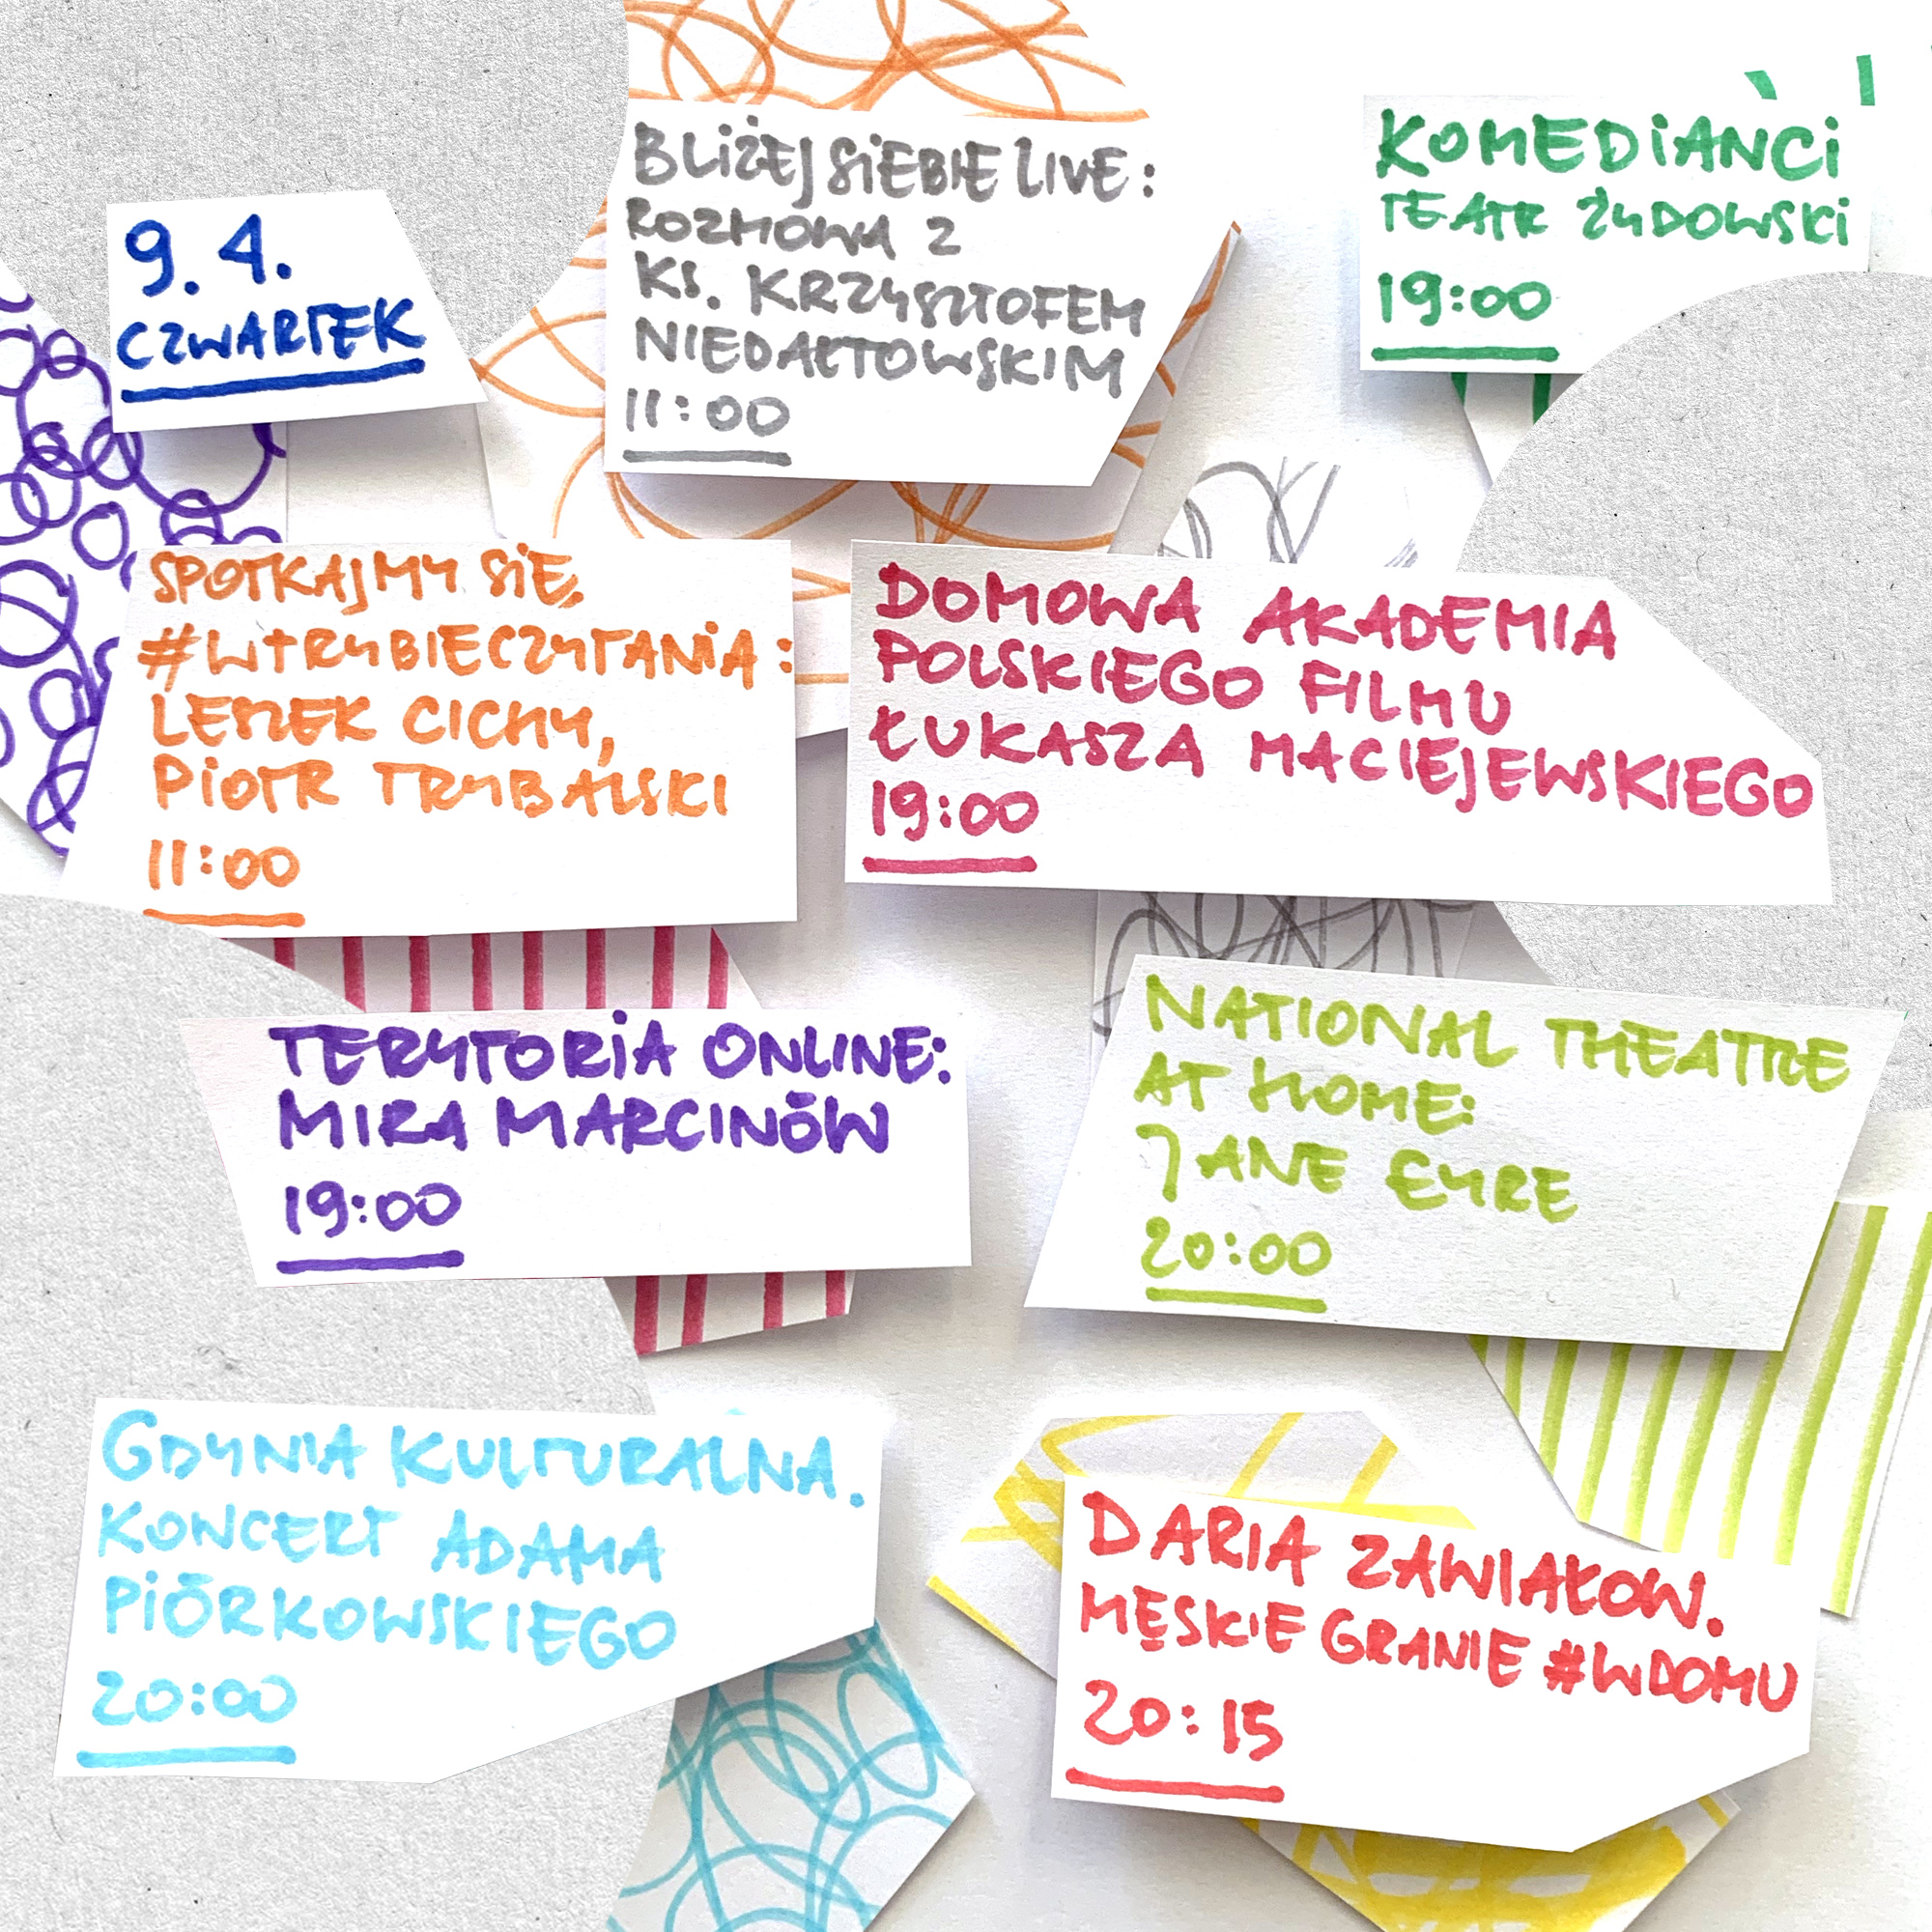 9.4.
CZWARTEK
BLIŻEJ SIEBIE LIVE:
ROZMOWA Z
KS. KRZYSZTOFEM
NIEDAŁTOWSKIM
11:00
KOMEDIANCI
TEATR ŻYDOWSKI
19:00
SPOTKAJMY SIĘ
#WTRYBIECZYTANIA:
LESZEK CICHY,
PIOTR TRYBALSKI
11:00
DOMOWA AKADEMIA
POLSKIEGO FILMU
ŁUKASZA MACIEJEWSKIEGO
19:00
TERYTORIA ONLINE:
MIRA MARCINÓW
19:00
NATIONAL THEATRE
AT HOME:
JANE EYRE
20:00
GDYNIA KULTURALNA.
KONCERT ADAMA
PIÓRKOWSKIEGO
20:00
DARIA ZAWIAŁOW.
MĘSKIE GRANIE #WDOMU
20:15